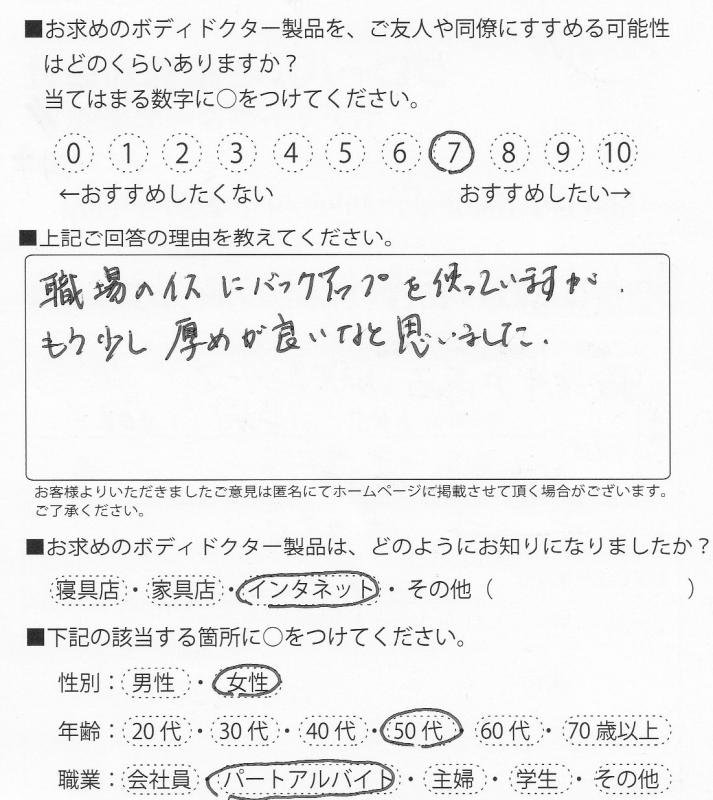 ■お求めのボディドクター製品を、ご友人や同僚にすすめる可能性
はどのくらいありますか？
当てはまる数字に○をつけてください。
0 1 2 3 4 5 6 7 8 9 10
←おすすめしたくない おすすめしたい→
■上記ご回答の理由を教えてください。
職場のイスにバックアップを使っていますが、
もう少し厚めが良いなと思いました.
お客様よりいただきましたご意見は匿名にてホームページに掲載させて頂く場合がございます。
ご了承ください。
■お求めのボディドクター製品は、どのようにお知りになりましたか？
寝具店・家具店・インタネット・その他（ ）
■下記の該当する箇所に○をつけてください。
性別：男性・女性
年齢：20代・30代・40代・50代・60代・70歳以上
職業：会社員・パートアルバイト・主婦・学生・その他